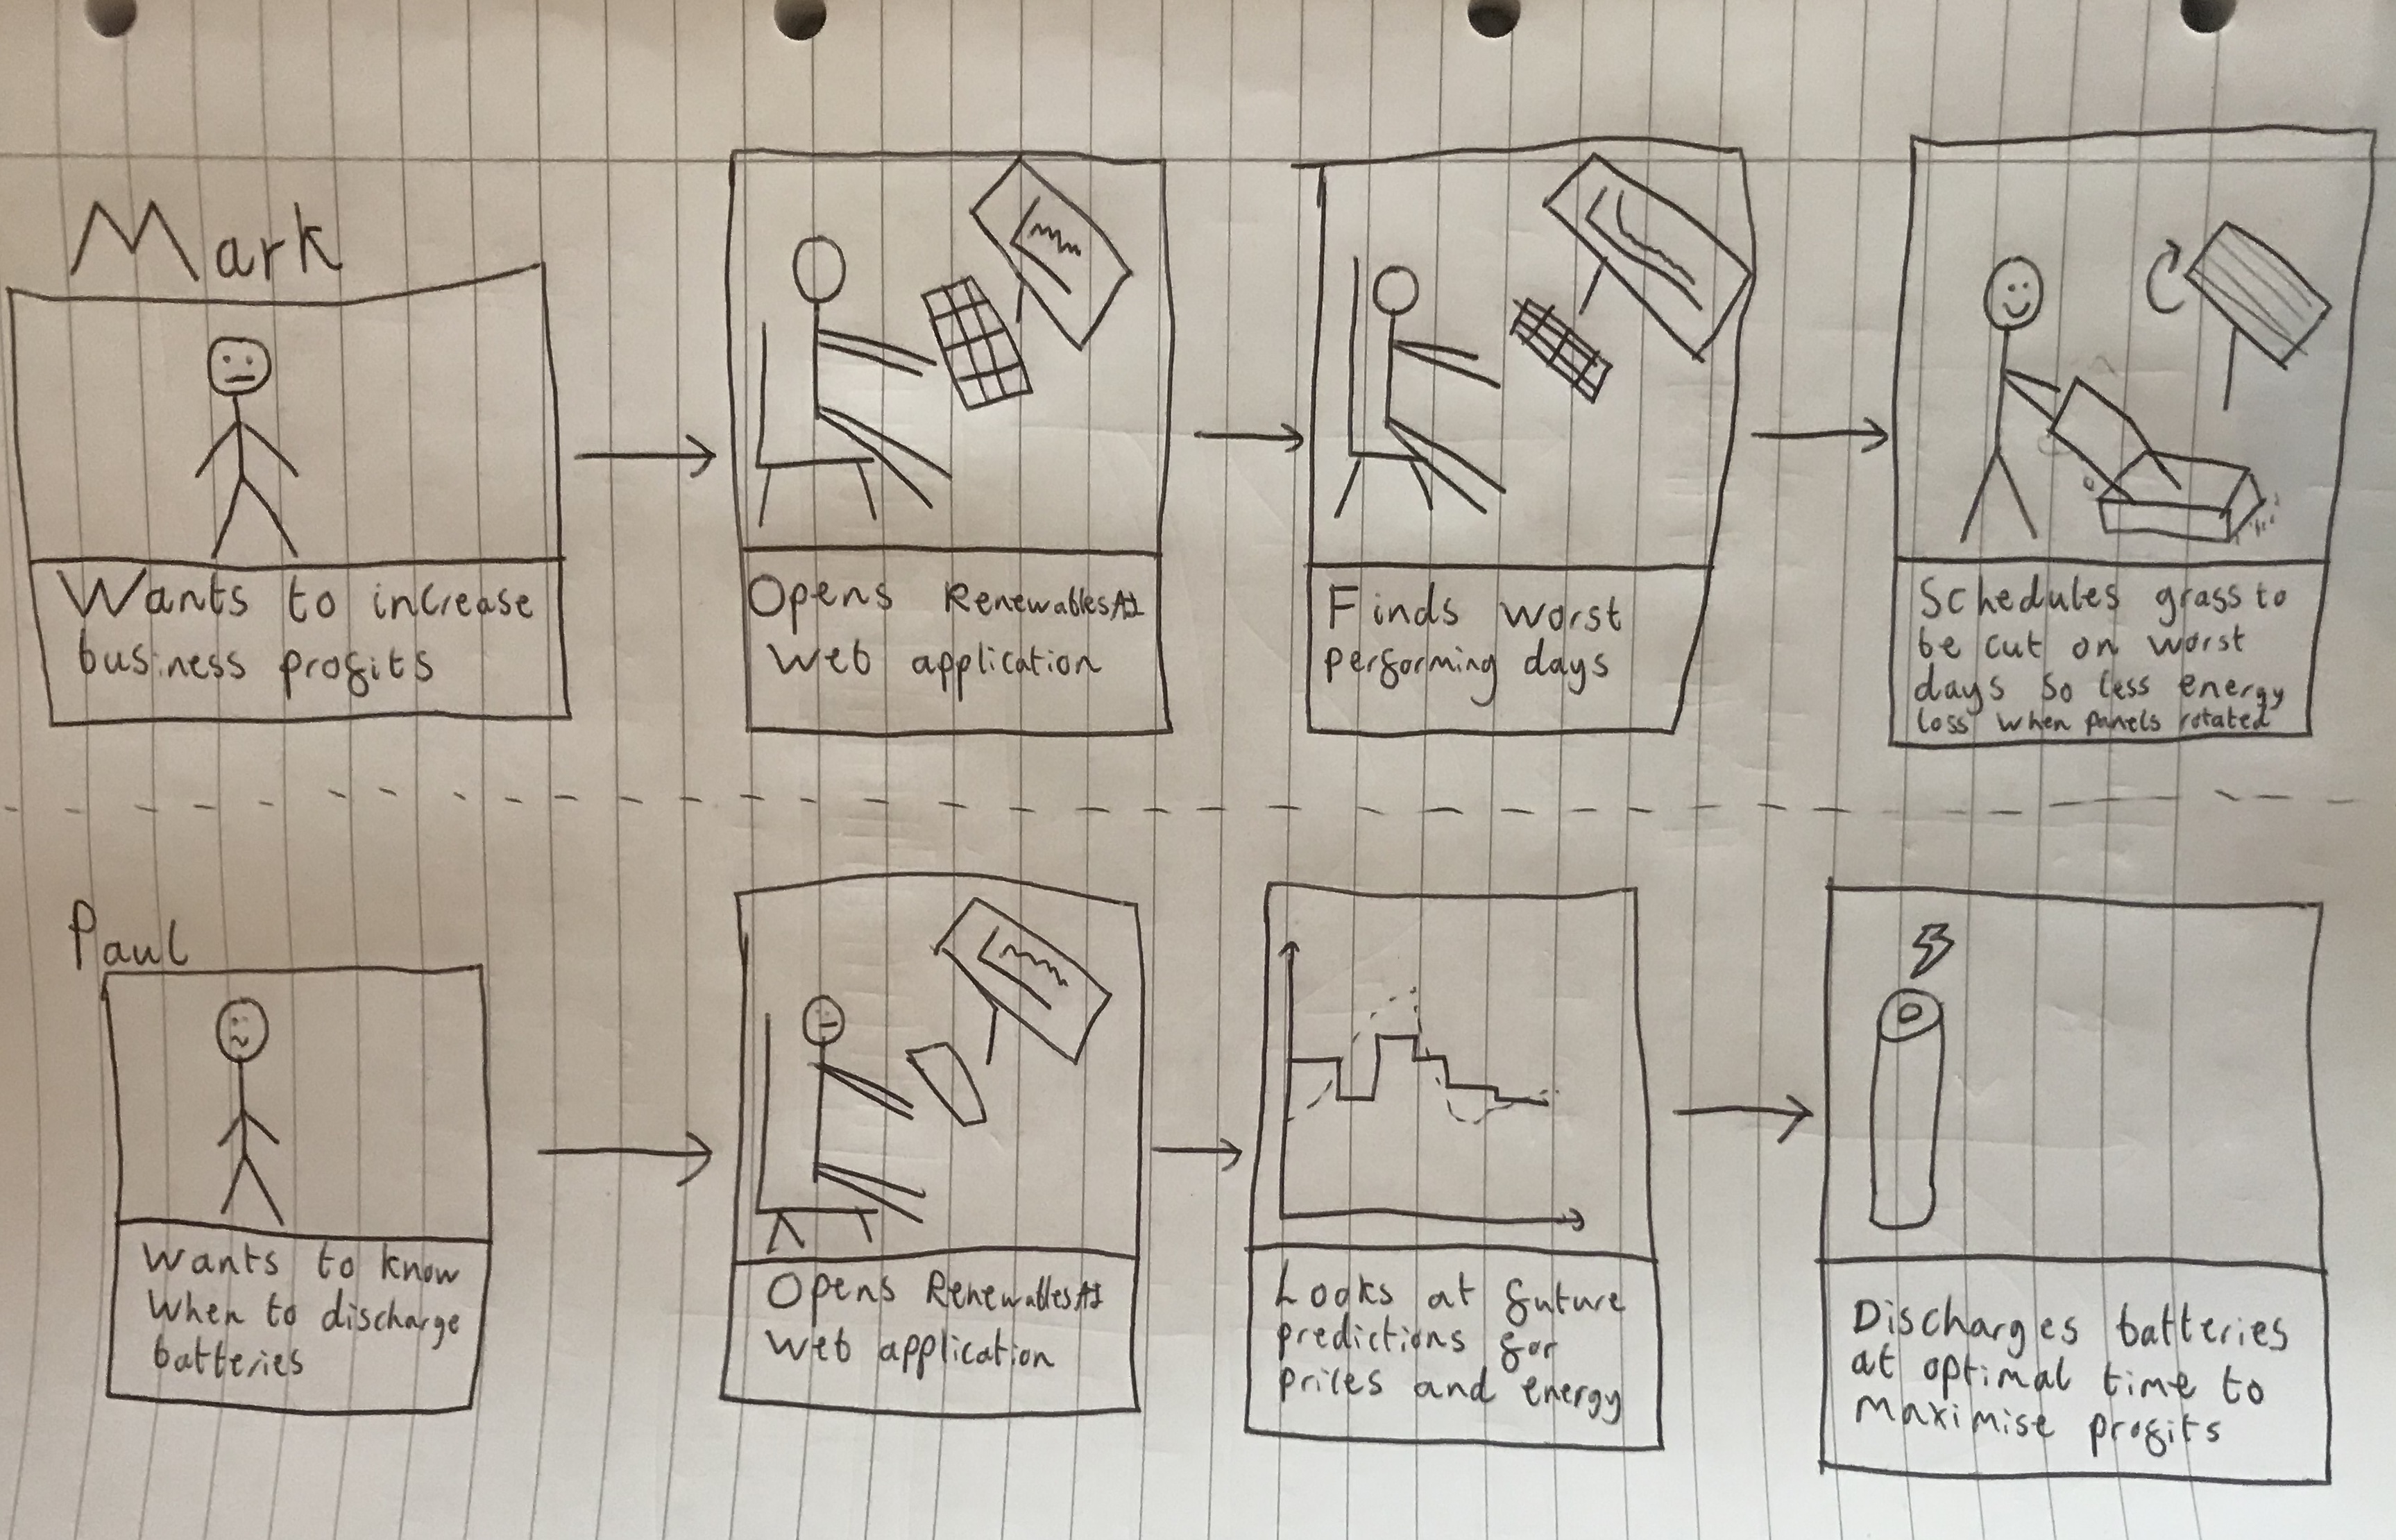 Mark
Wants to increase
business profits
Opens RenewablesAI
web application
Finds worst
performing days
Schedules grass to
be cut on worst
days so less energy
loss when panels rotated
Paul
Wants to know
when to discharge
batteries
Opens RenewablesAI
web application
Looks at future
predictions for
prices and energy
Discharges batteries
at optimal time to
maximise profits